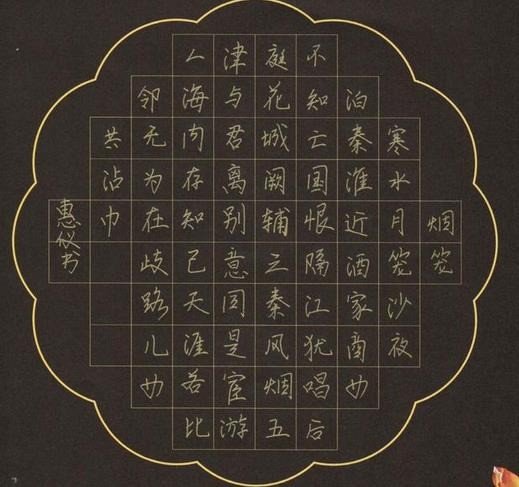 烟笼
寒水月笼沙夜
泊秦淮近酒家商女
不知亡国恨隔江犹唱后
庭花城阙辅三秦风烟五
津与君离别意同是宦游
人海内存知己天涯若比
邻无为在歧路儿女
共沾巾
惠仪书